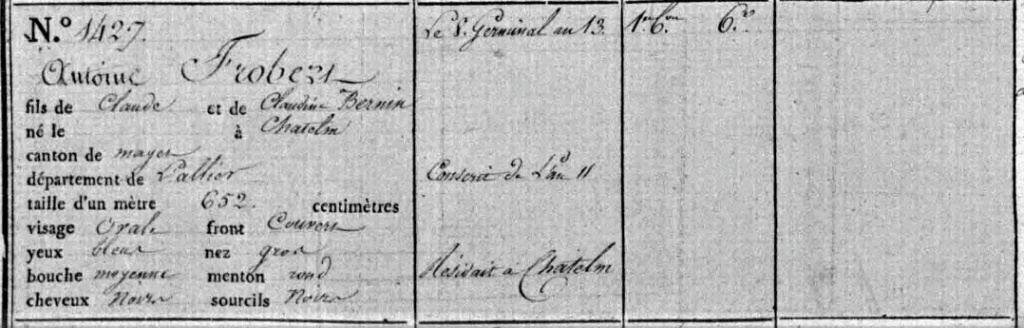 N.º 1427.
Antoine Frobert
fils de Claude et de Claudine Bernin
né le à Chatelm
canton de mayet
département de L'allier
taille d'un mètre 652. centimètres
visage Ovale front Couvert
yeux bleus nez gros
bouche moyenne menton rond
cheveux Noirs sourcils Noirs
Le 8. Germinal an 13.
Conscrit de L'an 11
Résidait à Chatelm
1er Bon
6.e